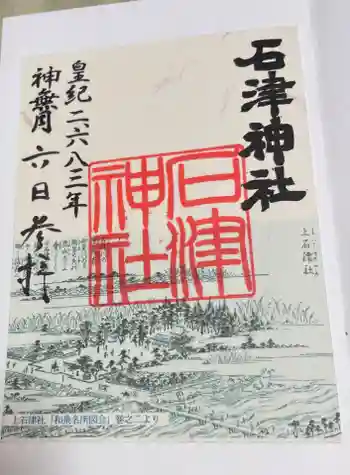 石津神社
皇紀二六八三年
神無月六日参拝
石津
神社
上石津社
上石津社「和泉名所図会」巻之二より